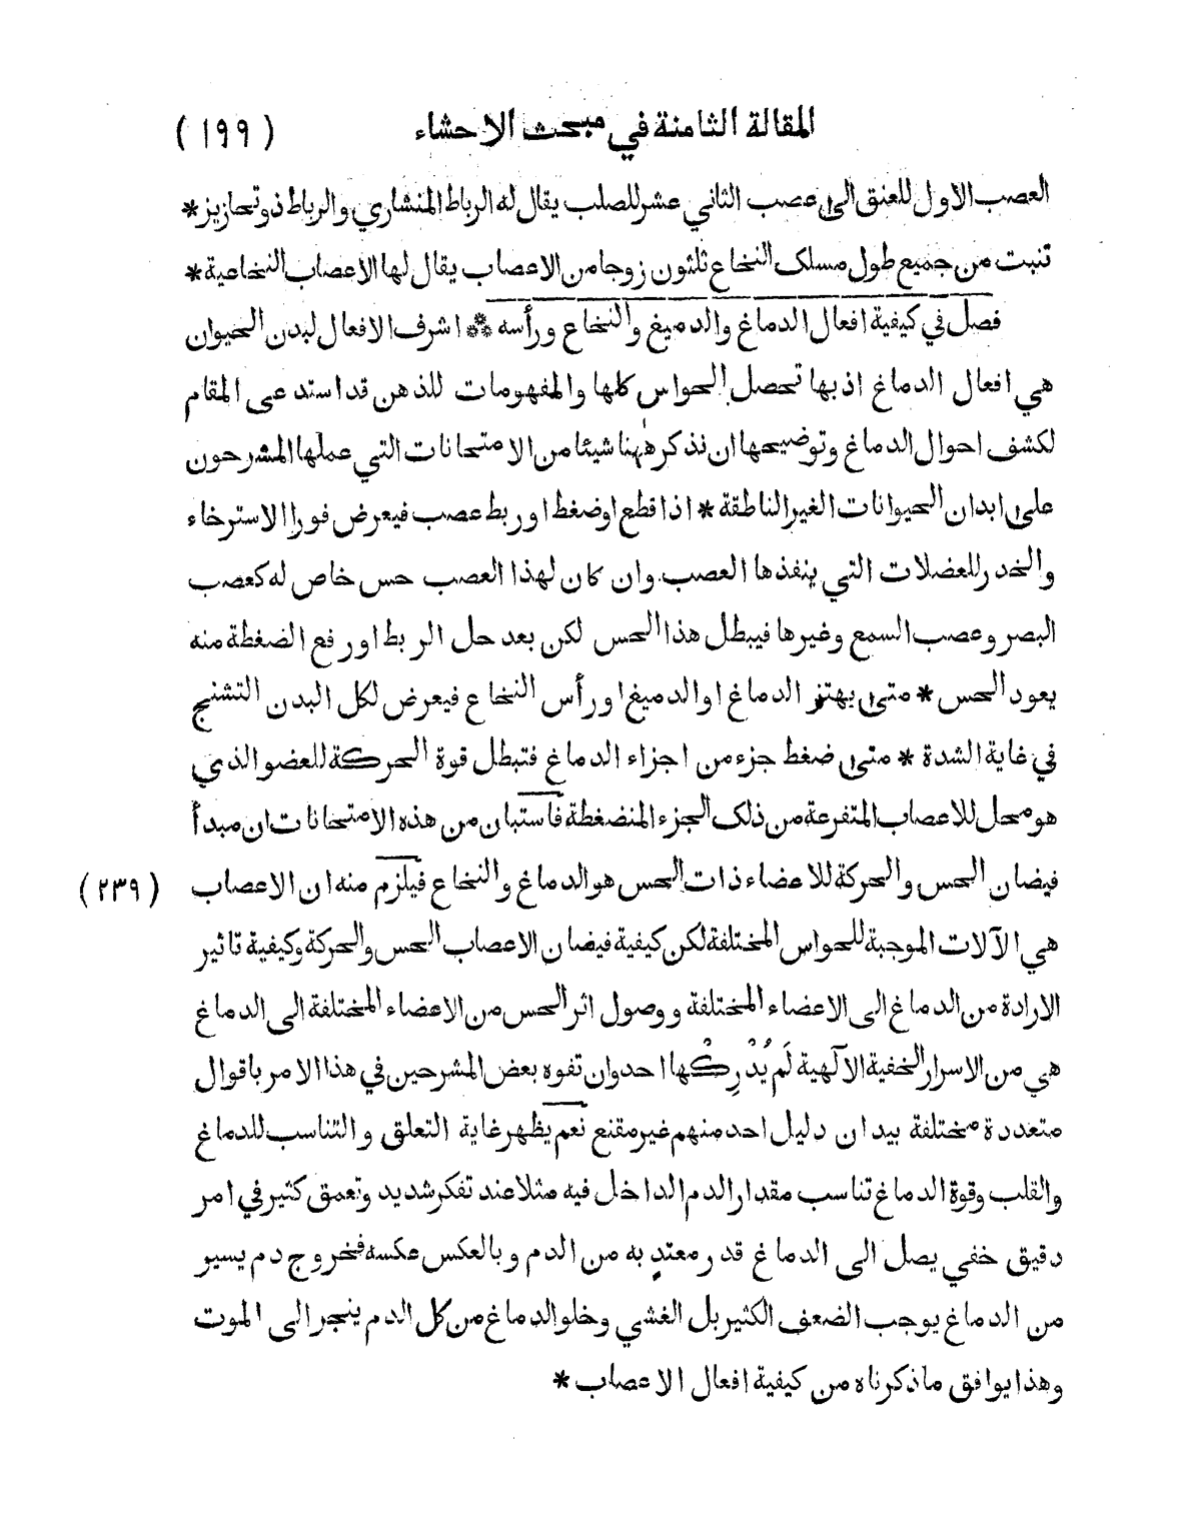 المقالة الثامنة في مبحث الاحشاء (١٩٩)
العصب الاول للعنق الى عصب الثاني عشر للصلب يقال له الرباط المنشاري والرباط ذو تحازيز *
تنبت من جميع طول مسلك النخاع ثلثون زوجا من الاعصاب يقال لها الاعصاب النخاعية *
فصل في كيفية افعال الدماغ والدميغ والنخاع ورأسه * اشرف الافعال لبدن الحيوان
هي افعال الدماغ اذ بها تحصل الحواس كلها والمفهومات للذهن قد استدعى المقام
لكشف احوال الدماغ وتوضيحها ان نذكر ههنا شيئا من الامتحانات التي عملها المشرحون
على ابدان الحيوانات الغير الناطقة * اذا قطع اوضغط او ربط عصب فيعرض فورا الاسترخاء
والخدر للعضلات التي ينفذها العصب وان كان لهذا العصب حس خاص له كعصب
البصر وعصب السمع وغيرها فيبطل هذا الحس لكن بعد حل الربط او رفع الضغطة منه
يعود الحس * متى يهتز الدماغ او الدميغ او رأس النخاع فيعرض لكل البدن التشنج
في غاية الشدة * متى ضغط جزء من اجزاء الدماغ فتبطل قوة الحركة للعضو الذي
هو محل للاعصاب المتفرعة من ذلك الجزء المنضغطة فاستبان من هذه الامتحانات ان مبدأ
فيضان الحس والحركة للاعضاء ذات الحس هو الدماغ والنخاع فيلزم منه ان الاعصاب (٢٣٩)
هي الآلات الموجبة للحواس المختلفة لكن كيفية فيضان الاعصاب الحس والحركة وكيفية تاثير
الارادة من الدماغ الى الاعضاء المختلفة ووصول اثر الحس من الاعضاء المختلفة الى الدماغ
هي من الاسرار الخفية الآلهية لَم يُدْرِكْها احد وان تفوه بعض المشرحين في هذا الامر باقوال
متعددة مختلفة بيد ان دليل احد منهم غير مقنع نعم يظهر غاية التعلق والتناسب للدماغ
والقلب وقوة الدماغ تناسب مقدار الدم الداخل فيه مثلا عند تفكر شديد وتعمق كثير في امر
دقيق خفي يصل الى الدماغ قدر معتدٍ به من الدم وبالعكس عكسه فخروج دم يسير
من الدماغ يوجب الضعف الكثير بل الغشي وخلو الدماغ من كل الدم ينجر الى الموت
وهذا يوافق ما ذكرناه من كيفية افعال الاعصاب *